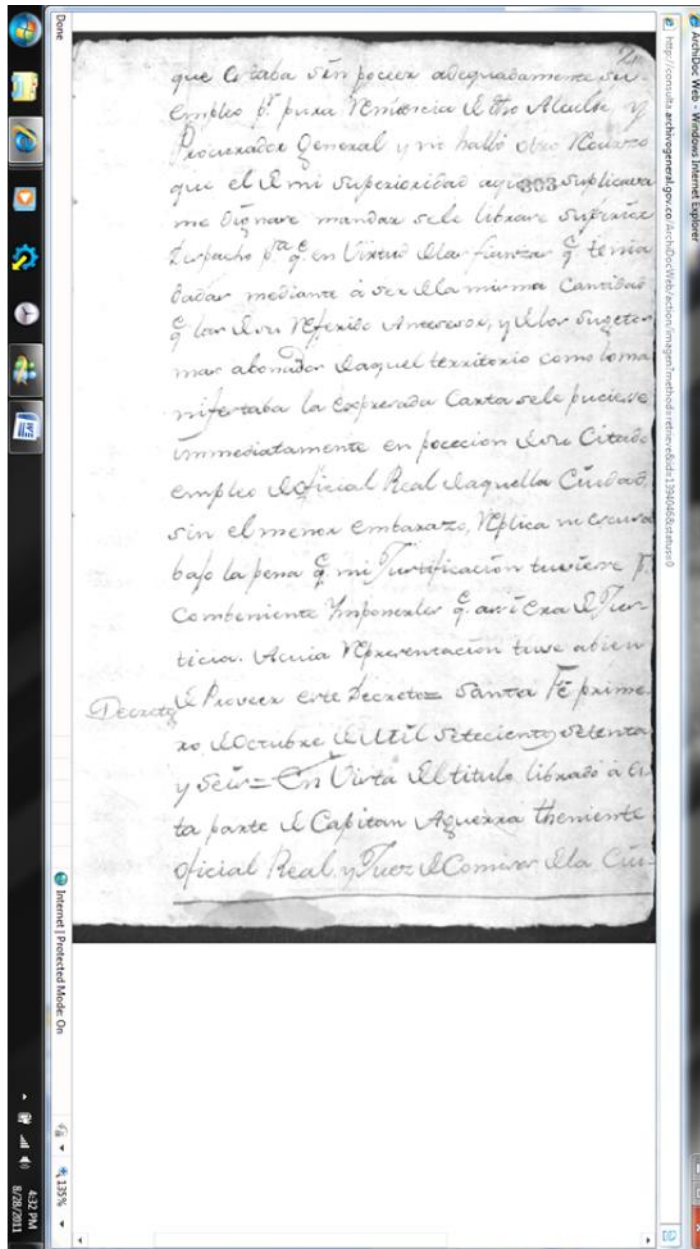 ArchiDoc Web - Windows Internet Explorer
http://consulta.archivogeneral.gov.co/ArchiDocWeb/action/imagen?method=retrieve&id=1394046&status=0
2
que estaba sin poceer adequadamente su
empleo pr. pura Remicencia de dho Alcalde y
Procurador General y no halló otro Recurso
que el de mi Superioridad aqn. suplicava
303
me dignare mandar sele librare superior
Despacho pa. q.e en Virtud delas fianzas q.e tenia
dadas mediante á ser dela misma Cantidad
q.e las desu Referido Antesesor, y delos Sugetos
mas abonados deaquel territorio como loma
nifestaba la expresada Carta sele puciese
immediatamente en pocecion desu Citado
empleo deoficial Real deaquella Ciudad,
sin el menor embarazo, Replica ni escusa
bajo la pena q.e mi Justificacion tuviese p.r
Combeniente Ymponerles q.e assi era de Jus-
ticia. Acuia Representacion tuve abien
Decreto
de Proveer este Decreto= Santa Fé prime
ro de Octubre de Mil Setecientos Setenta
y Seis= En Vista del titulo librado á es
ta parte de Capitan Aguerra theniente
Oficial Real y Juez de Comisos dela Ciu-
Done
Internet | Protected Mode: On
135%
4:32 PM
8/28/2011